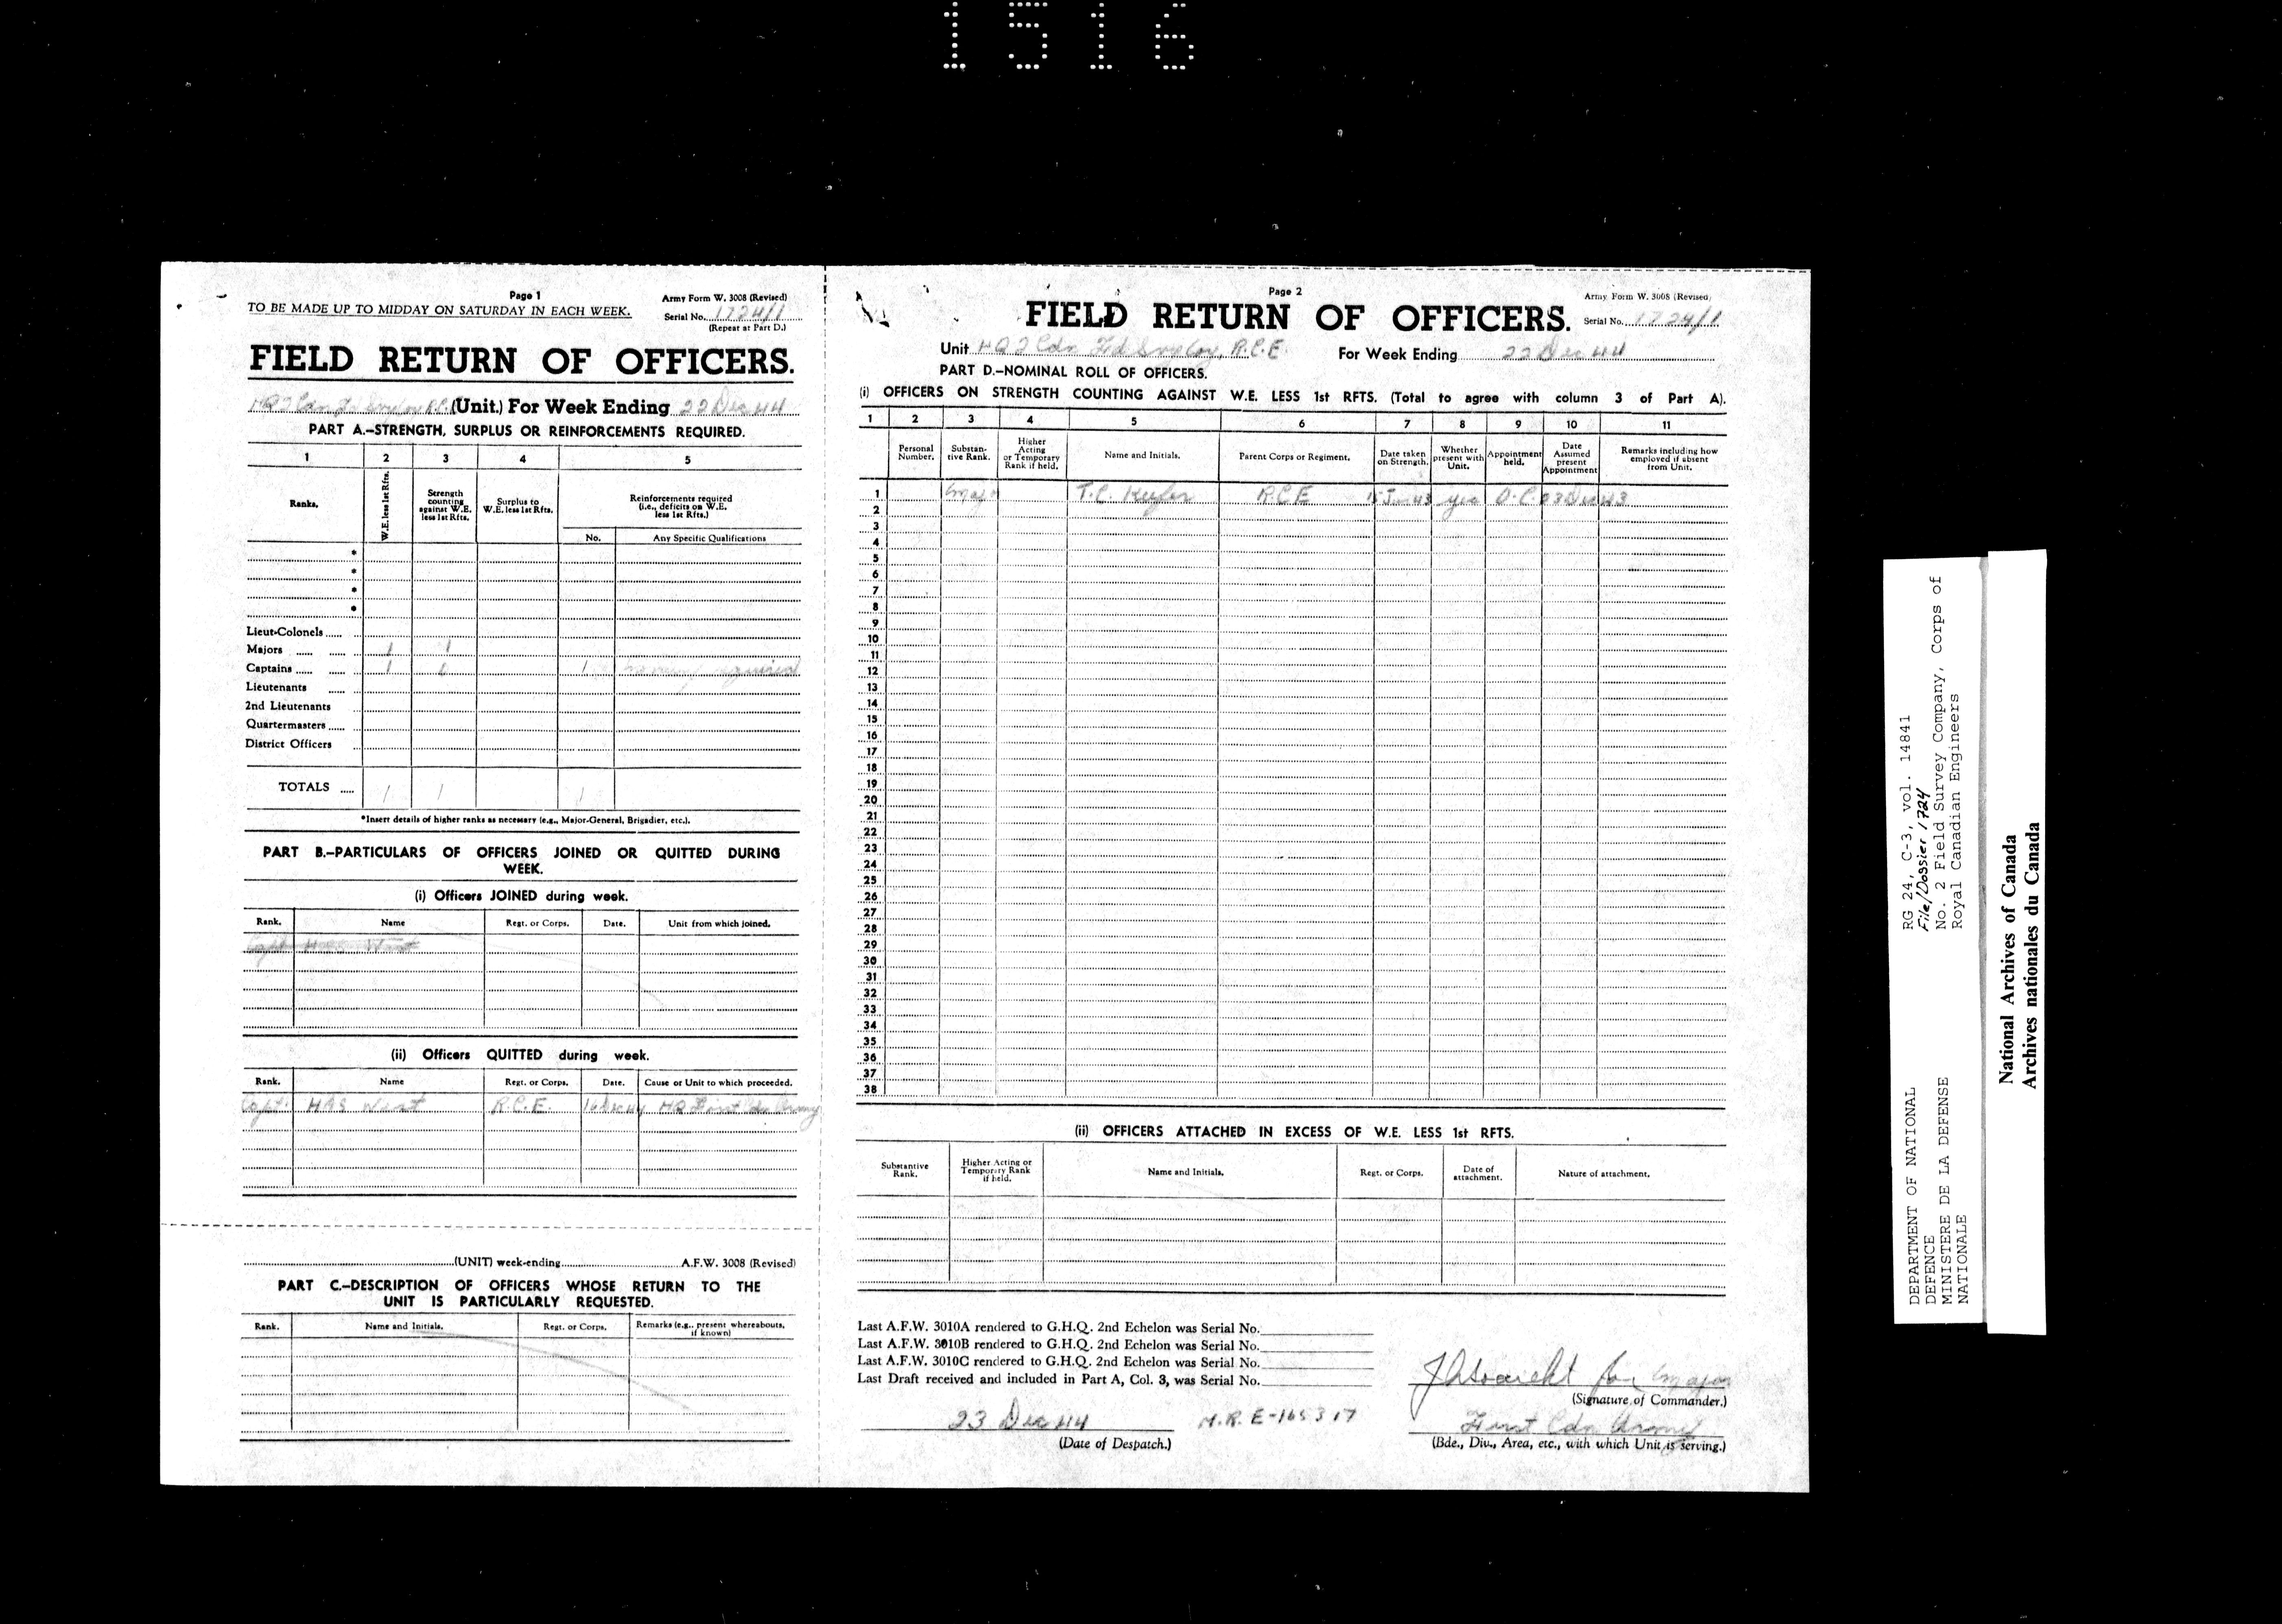 1516
Page 1
TO BE MADE UP TO MIDDAY ON SATURDAY IN EACH WEEK.
Army Form W. 3008 (Revised)
Serial No. 1724/1
(Repeat at Part D.)
FIELD RETURN OF OFFICERS.
HQ 2 Cdn (Unit.) For Week Ending 22 Dec 44
PART A.—STRENGTH, SURPLUS OR REINFORCEMENTS REQUIRED.
1 2 3 4 5
Ranks.
W.E. less 1st Rfts.
Strength counting against W.E. less 1st Rfts.
Surplus to W.E. less 1st Rfts.
Reinforcements required (i.e., deficits on W.E. less 1st Rfts.)
No. Any Specific Qualifications
*
*
*
*
Lieut-Colonels
Majors 1 1
Captains 1 1 required
Lieutenants
2nd Lieutenants
Quartermasters
District Officers
TOTALS 1 1 1
*Insert details of higher ranks as necessary (e.g., Major-General, Brigadier, etc.).
PART B.—PARTICULARS OF OFFICERS JOINED OR QUITTED DURING
WEEK.
(i) Officers JOINED during week.
Rank. Name Regt. or Corps. Date. Unit from which joined.
Capt HAS West
(ii) Officers QUITTED during week.
Rank. Name Regt. or Corps. Date. Cause or Unit to which proceeded.
Capt. HAS West R.C.E. 16 Dec 44 HQ First Cdn Army
(UNIT) week-ending A.F.W. 3008 (Revised)
PART C.—DESCRIPTION OF OFFICERS WHOSE RETURN TO THE
UNIT IS PARTICULARLY REQUESTED.
Rank. Name and Initials. Regt. or Corps. Remarks (e.g., present whereabouts, if known)
Page 2
Army Form W. 3008 (Revised)
FIELD RETURN OF OFFICERS.
Serial No. 1724/1
Unit HQ 2 Cdn Fd Svy Coy, R.C.E. For Week Ending 22 Dec 44
PART D.—NOMINAL ROLL OF OFFICERS.
(i) OFFICERS ON STRENGTH COUNTING AGAINST W.E. LESS 1st RFTS. (Total to agree with column 3 of Part A).
1 2 3 4 5 6 7 8 9 10 11
Personal Number.
Substantive Rank.
Higher Acting or Temporary Rank if held.
Name and Initials.
Parent Corps or Regiment.
Date taken on Strength.
Whether present with Unit.
Appointment held.
Date Assumed present Appointment
Remarks including how employed if absent from Unit.
1 Major T.C. Keefer R.C.E 15 43 yes O.C. 23 Dec 43
2
3
4
5
6
7
8
9
10
11
12
13
14
15
16
17
18
19
20
21
22
23
24
25
26
27
28
29
30
31
32
33
34
35
36
37
38
(ii) OFFICERS ATTACHED IN EXCESS OF W.E. LESS 1st RFTS.
Substantive Rank.
Higher Acting or Temporary Rank if held.
Name and Initials.
Regt. or Corps.
Date of attachment.
Nature of attachment.
Last A.F.W. 3010A rendered to G.H.Q. 2nd Echelon was Serial No.
Last A.F.W. 3010B rendered to G.H.Q. 2nd Echelon was Serial No.
Last A.F.W. 3010C rendered to G.H.Q. 2nd Echelon was Serial No.
Last Draft received and included in Part A, Col. 3, was Serial No.
for Major
(Signature of Commander.)
23 Dec 44 M.R. E-165317
(Date of Despatch.)
First Cdn Army
(Bde., Div., Area, etc., with which Unit is serving.)
DEPARTMENT OF NATIONAL
DEFENCE
MINISTERE DE LA DEFENSE
NATIONALE
RG 24, C-3, vol. 14841
File/Dossier 1724
No. 2 Field Survey Company, Corps of
Royal Canadian Engineers
National Archives of Canada
Archives nationales du Canada